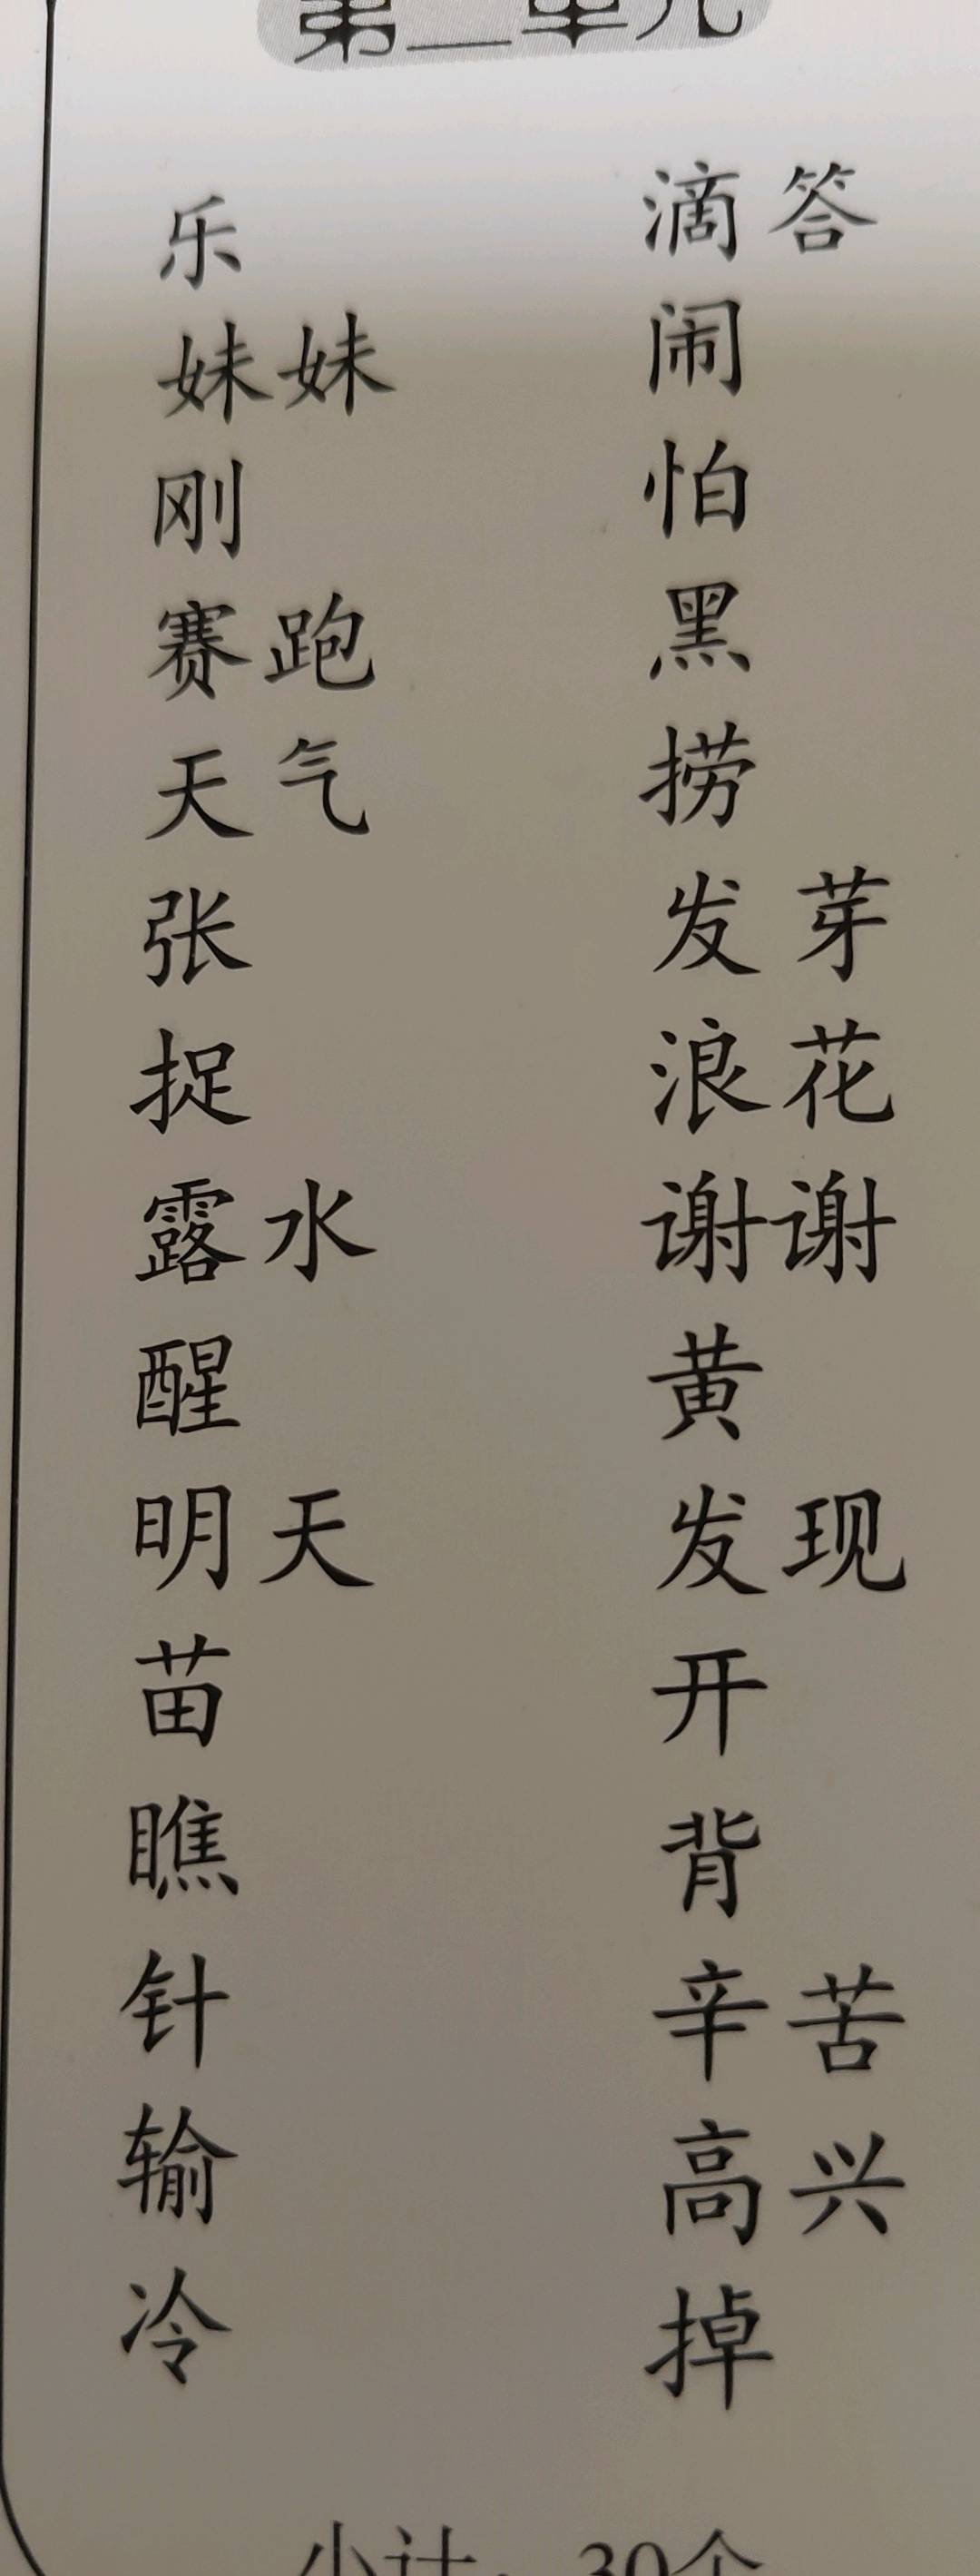 乐 滴答
妹妹 闹
刚 怕
赛跑 黑
天气 捞
张 发芽
捉 浪花
露水 谢谢
醒 黄
明天 发现
苗 开
瞧 背
针 辛苦
输 高兴
冷 掉
小计：30个